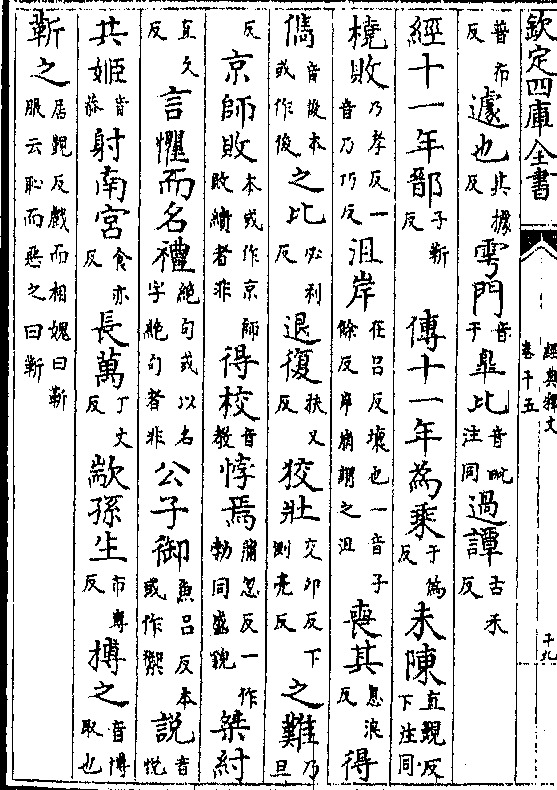 欽定四庫全書
經典釋文
卷十五
十九
普布反遽也其據反雩門音于臯比音毗注同過譚古禾反
經十一年鄑子斯反 傳十一年為乘于偽反未陳直覲反下注同
橈敗乃孝反一音乃巧反沮岸在呂反壞也一音子餘反岸崩謂之沮喪其息浪反得
儁音俊本或作俊之比必利反退復扶又反狡壯交卯反下側亮反之難乃旦
反京師敗本或作京師敗績者非得校音教悖焉蒲忽反一作勃同盛貌桀紂
直久反言懼而名禮絶句或以名字絶句者非公子御魚呂反本或作禦說音悅
共姬音恭射南宮食亦反長萬丁丈反歂孫生市專反搏之音博取也
靳之居覲反戲而相媿曰靳服云恥而惡之曰靳